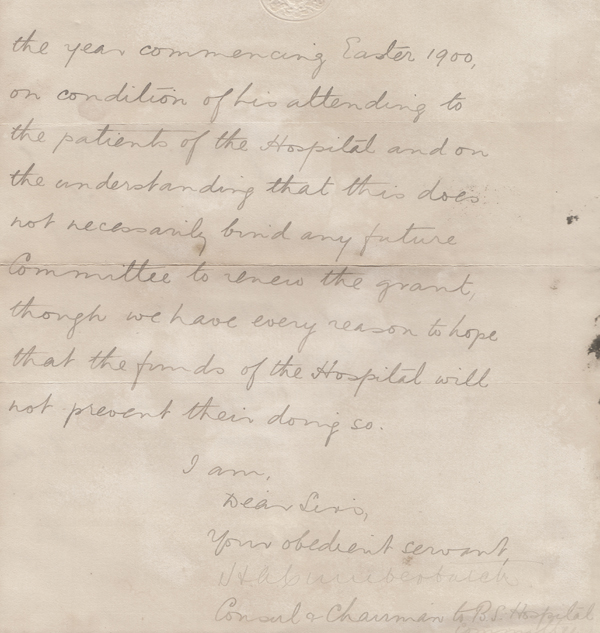 the year commencing Easter 1900,
on condition of his attending to
the patients of the Hospital and on
the understanding that this does
not necessarily bind any future
Committee to renew the grant,
though we have every reason to hope
that the funds of the Hospital will
not prevent their doing so.
I am,
Dear Sirs,
Your obedient servant,
Consul & Chairman to B.S. Hospital